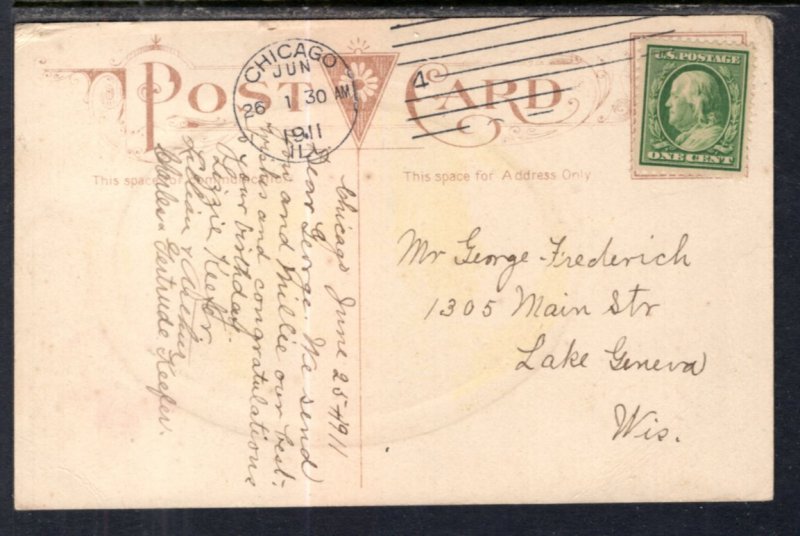 POST CARD
CHICAGO
JUN
26 1 30 AM
1911
ILL
4
U.S. POSTAGE
ONE CENT
This space
This space for Address Only
Chicago June 25-1911
Dear George. We send
and Millie our best
wishes and congratulations
your birthday.
Lizzie Keefer
Lillian &
Gertrude Keefer.
Mr George Frederich
1305 Main Str
Lake Geneva
Wis.